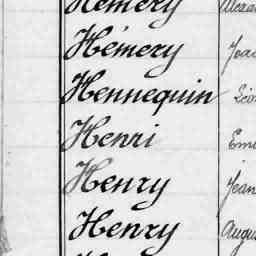 Hémery
Hémery Jea
Hennequin Léon
Henri Emi
Henry Jean
Henry Augu